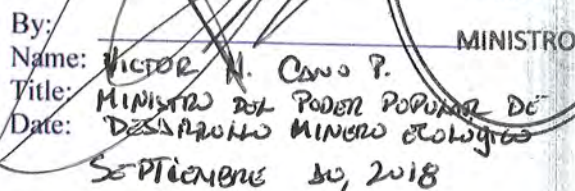 By:
MINISTRO
Name: VICTOR H. CANO P.
Title: MINISTRO DEL PODER POPULAR DE
Date: DESARROLLO MINERO ECOLOGICO
SEPTIEMBRE 10, 2018